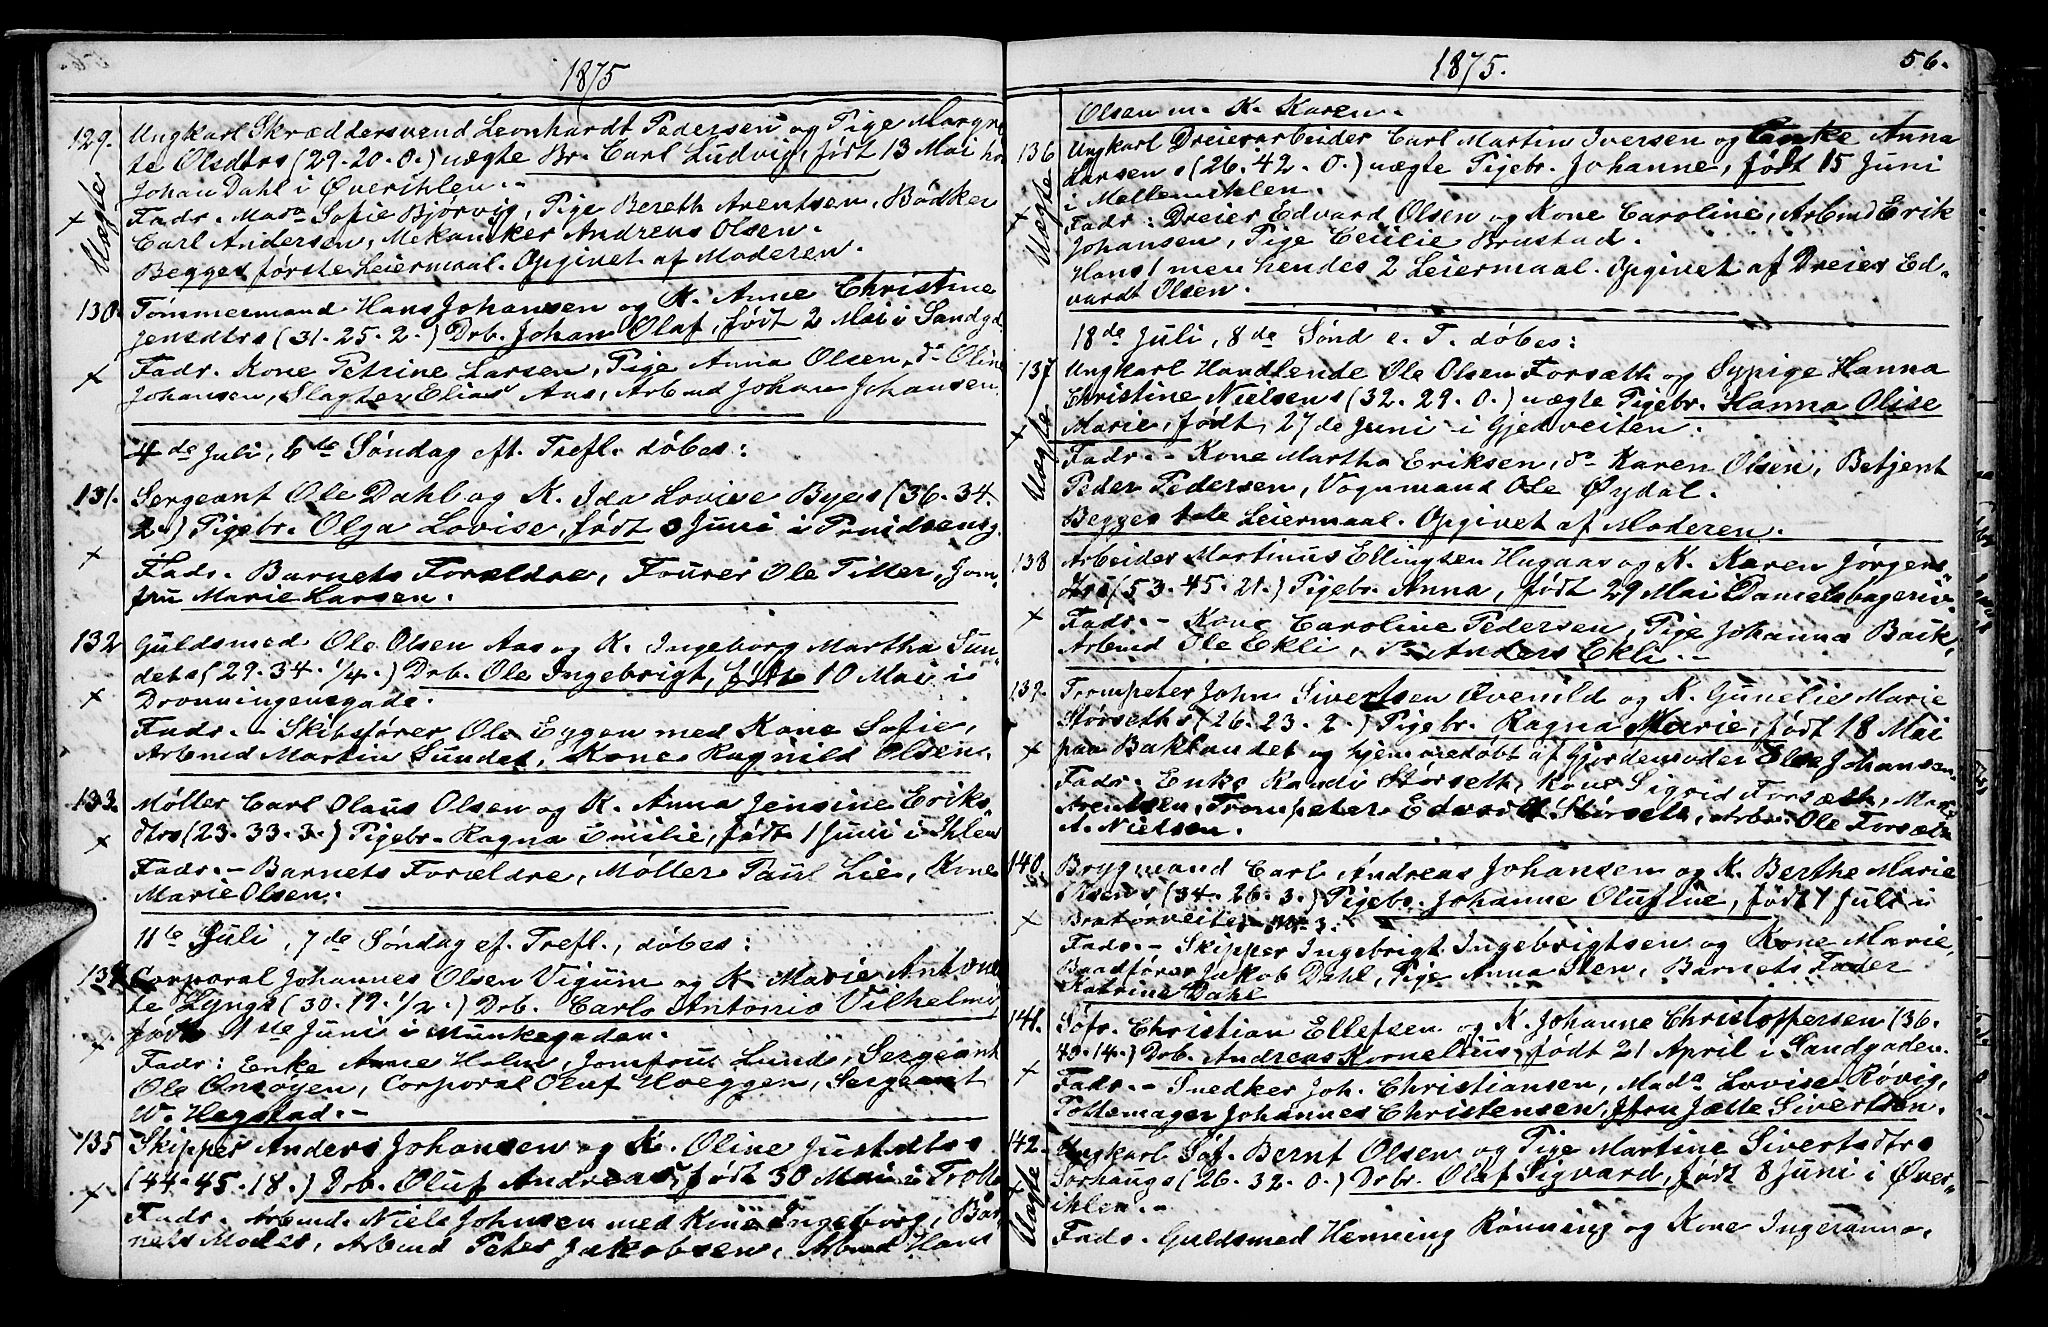 1875
129. Ungkarl Skræddersvend Leonhardt Pedersen og Pige Margre
te Olsdtrs (29. 20. 0.) uægte Br. Carl Ludvig, født 13 Mai hos
Johan Dahl i Øverihlen.
Uægte
Fadr. Mada Sofie Bjørvig, Pige Bereth Arentsen, Bødker
Carl Andersen, Mekaniker Andreas Olsen.
Begges første Leiermaal. Opgivet af Moderen.
130. Tømmermand Hans Johansen og K. Anne Christine
Jensdtrs (31. 25. 2.) Drb. Johan Olaf, født 2 Mai i Sandgd
Fadr. Kone Petrine Larsen, Pige Anna Olsen, do Oline
Johansen, Slagter Elias Aas, Arbmd Johan Johansen.
4de Juli, 6te Søndag eft. Trefl. døbes:
131. Sergeant Ole Dahl og K. Ida Lovise Byes (36. 34.
2.) Pigebr. Olga Lovise, født 3 Juni i Prindsensg.
Fadr. Barnets Forældre, Fourer Ole Tiller, Jom-
fru Marie Larsen.
132 Guldsmed Ole Olsen Aas og K. Ingeborg Martha Sun-
dets (29. 34. 1/4.) Drb. Ole Ingebrigt, født 10 Mai i
Dronningensgade.
Fadr. - Skibsfører Ole Eggen med Kone Sofie,
Arbmd Martin Sundet, Kone Ragnild Olsen.
133. Møller Carl Olaus Olsen og K. Anna Jensine Eriks
dtrs (23. 33. 3.) Pigebr. Ragna Emilie, født 1 Juni i Ihlen
Fadr. - Barnets Forældre, Møller Paul Lie, Kone
Marie Olsen.
11te Juli, 7de Søndag ef. Trefl., døbes:
134 Corporal Johannes Olsen Vigum og K. Marie Antonet
te Lyngs (30. 19. 1/2.) Drb. Carl Antonio Vilhelm,
født 1ste Juni i Munkegaden.
Fadr: Enke Anne Holm, Jomfru Lund, Sergeant
Ole Onsøyen, Corporal Oluf Hoeggen, Sergeant
W. Hegstad. -
135 Skipper Anders Johansen og K. Oline Justndtrs
(44. 45. 18.) Drb. Oluf Andreas, født 30 Mai i Trolla
Fadr. Arbmd. Niels Johnsen med Kone Ingeborg, Bar-
nets Moder, Arbmd Peter Jakobsen, Arbmd Hans
1875.
56.
Olsen m. K. Karen.
136 Ungkarl Dreierarbeider Carl Martin Iversen og Enke Anna
Larsens (26. 42. 0.) uægte Pigebr. Johanne, født 15 Juni
i Mellemihlen.
Uægte
Fadr: Dreier Edvard Olsen og Kone Caroline, Arbmd Erik
Johansen, Pige Cecilie Brustad.
Hans 1 men hendes 2 Leiermaal. Opgivet af Dreier Ed-
vardt Olsen.
18de Juli, 8de Sønd e. T. døbes:
137 Ungkarl Handlende Ole Olsen Forsæth og Sypige Hanna
Christine Nielsens (32. 29. 0.) uægte Pigebr. Hanna Olise
Marie, født, 27de Juni i Gjedveiten.
Uægte
Fadr. - Kone Martha Eriksen, do Karen Olsen, Betjent
Peder Pedersen, Vognmand Ole Øydal.
Begges 1ste Leiermaal. Opgivet af Moderen.
138 Arbeider Martinus Ellingsen Hagaas og K. Karen Jørgens
dtrs (53. 45. 21.) Pigebr. Anna, født 29 Mai i Danielsbageriv.
Fadr. - Kone Caroline Pedersen, Pige Johanna Bakk,
Arbmd Ole Ekli, Anders Ekli. -
139. Trompeter John Sivertsen Øvenild og K. Gunelie Marie
Størseths (26. 23. 2.) Pigebr. Ragna Marie, født 18 Mai
paa Baklandet og hjemmedøbt af Gjordemoder Else Johansen.
Fadr. Enke Randi Størseth, Kone Sigrid Forsæth,
Arentsen, Trompeter Edvard Størseth, Arb. Ole Forsæth
A. Nielsen.
140. Brygmand Carl Andreas Johansen og K. Berthe Marie
Olsens (34. 26. 3.) Pigebr. Johanne Olufine, født 1 Juli i
Bratørveiten No 3.
Fadr. - Skipper Ingebrigt Ingebrigtsen og Kone Marie,
Baadfører Jakob Dahl, Pige Anna Sten, Barnets Fader
Katrine Dahl
141. Søfr. Christian Ellefsen og K. Johanne Christoffersen (36.
40. 14.) Drb. Andreas Kornelius, født 21 April i Sandgaden.
Fadr. - Snedker Joh. Christiansen, Mada Lovise Røvig,
Pottemager Johannes Christensen, Jfru Jette Sivertsen.
142. Ungkarl Søf. Bernt Olsen og Pige Martine Sivertsdtrs
Sorhaugs (26. 32. 0.) Drbr. Olaf Sigvard, født 8 Juni i Øver-
ihlen. -
Uægte
Fadr. Guldsmed Henning Rønning og Kone Ingeranna,